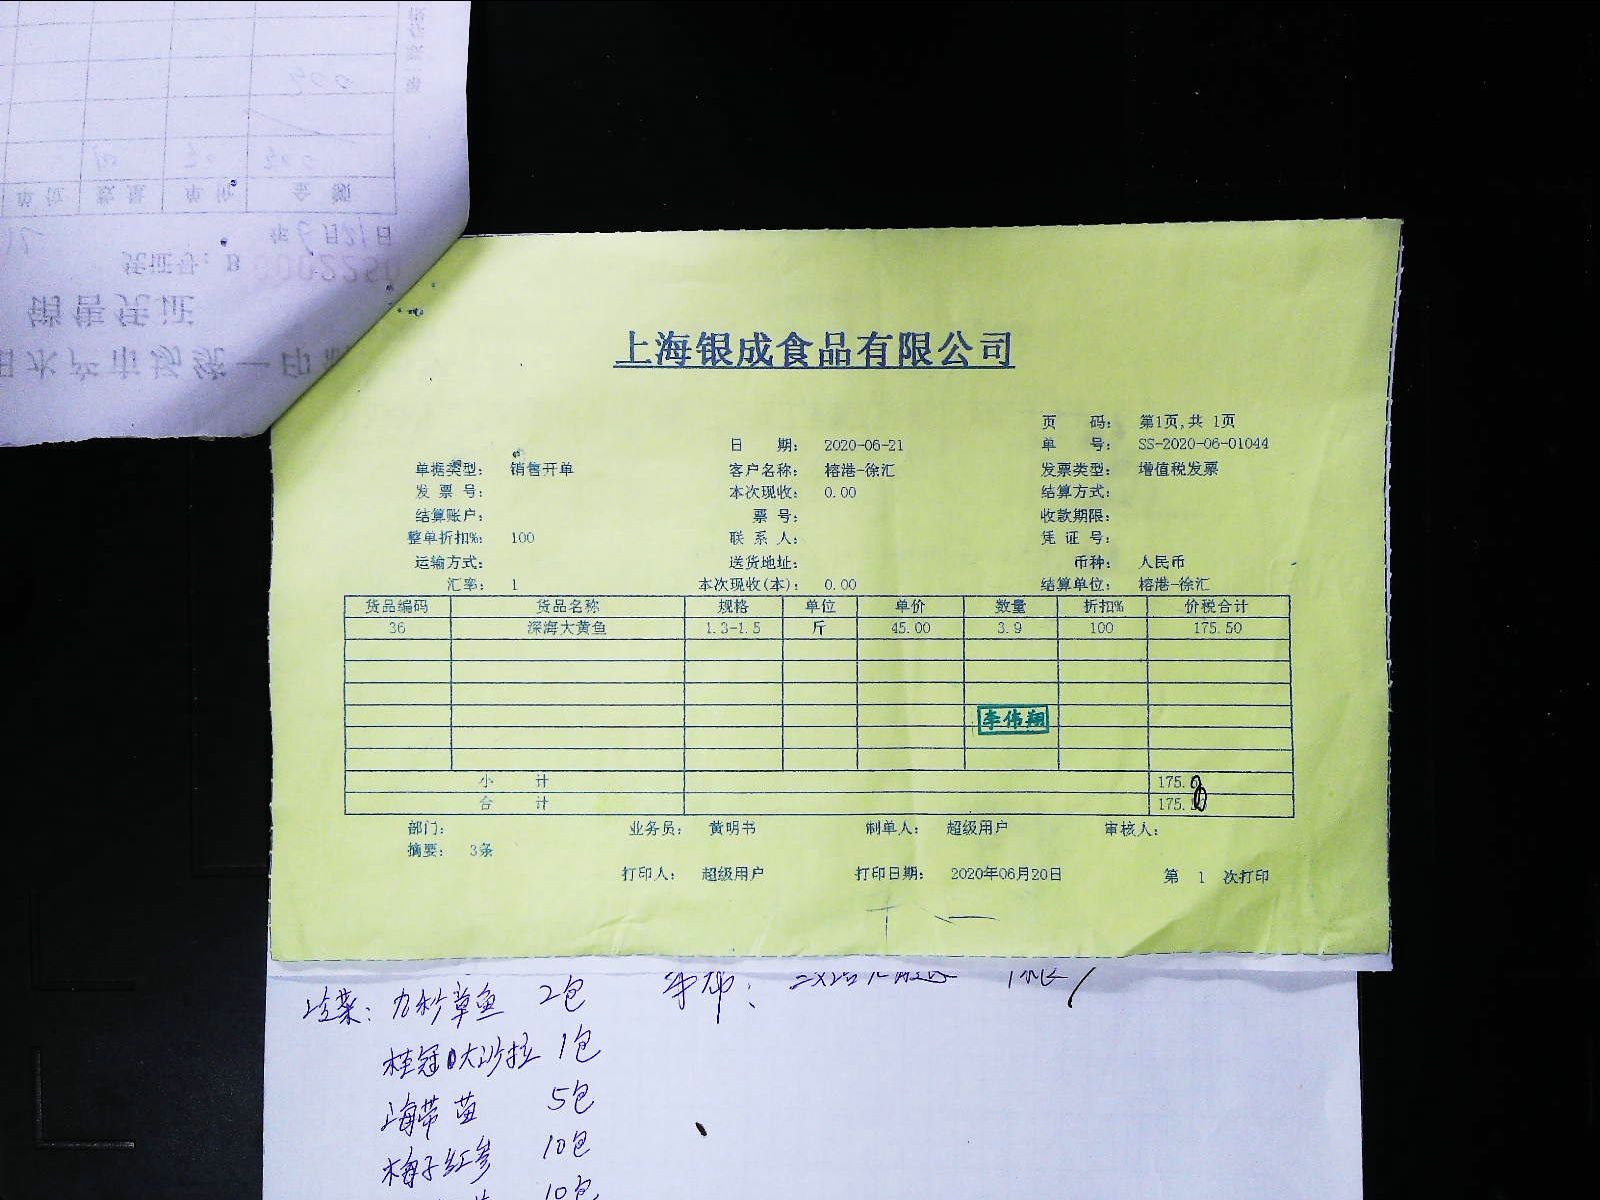 上海银成食品有限公司
页 码: 第1页,共 1页
日 期: 2020-06-21 单 号: SS-2020-06-01044
单据类型: 销售开单 客户名称: 榕港-徐汇 发票类型: 增值税发票
发 票 号: 本次现收: 0.00 结算方式:
结算账户: 票 号: 收款期限:
整单折扣%: 100 联 系 人: 凭 证 号:
运输方式: 送货地址: 币种: 人民币
汇率: 1 本次现收(本): 0.00 结算单位: 榕港-徐汇
货品编码 货品名称 规格 单位 单价 数量 折扣% 价税合计
36 深海大黄鱼 1.3-1.5 斤 45.00 3.9 100 175.50
李伟翔
小 计 175.
合 计 175.
部门: 业务员: 黄明书 制单人: 超级用户 审核人:
摘要: 3条
打印人: 超级用户 打印日期: 2020年06月20日 第 1 次打印
单位 数量 单价 金额
年6月21日
凭证号: B 0002250
销售凭证
水产市场统一印制
冷菜: 章鱼 2包
桂冠大沙拉 1包
海带苗 5包
梅子红参 10包
10包